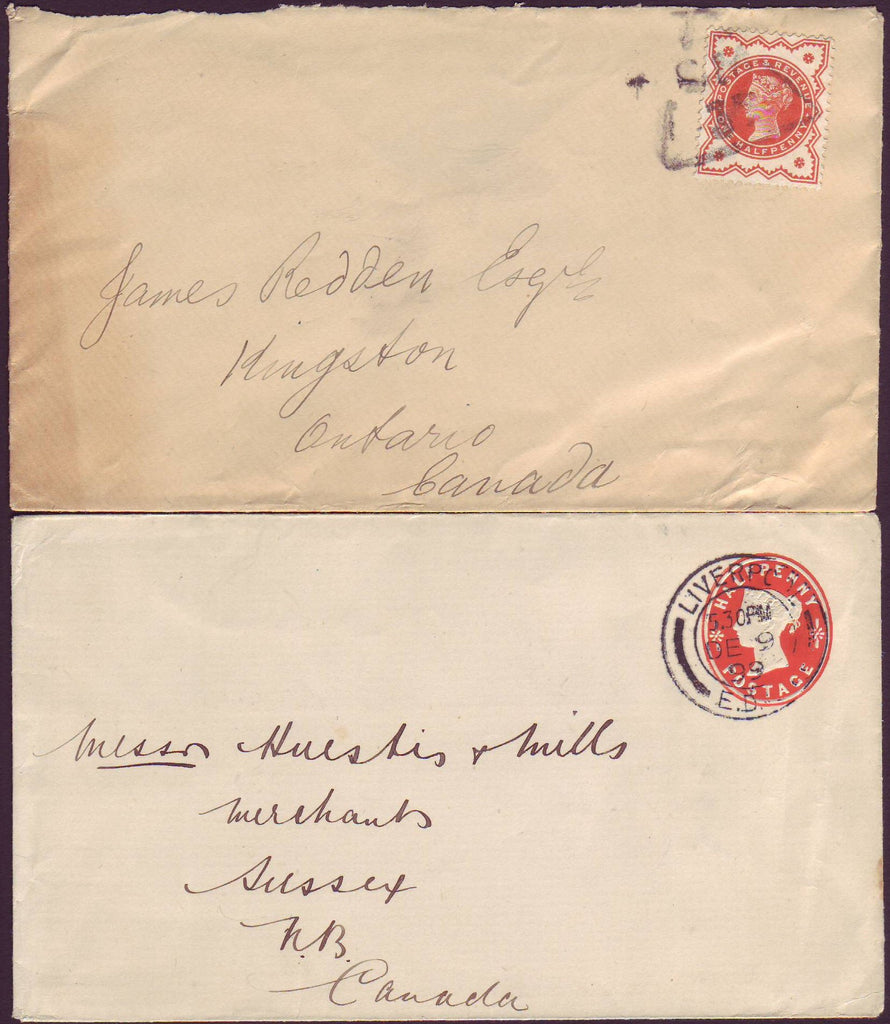 POSTAGE & REVENUE
HALFPENNY
James Redden Esqre
Kingston
Ontario
Canada
LIVERPOOL
5.30PM
DE 9
99
E.D.
HALFPENNY
POSTAGE
Messrs Huestis & Mills
Merchants
Sussex
N.B.
Canada